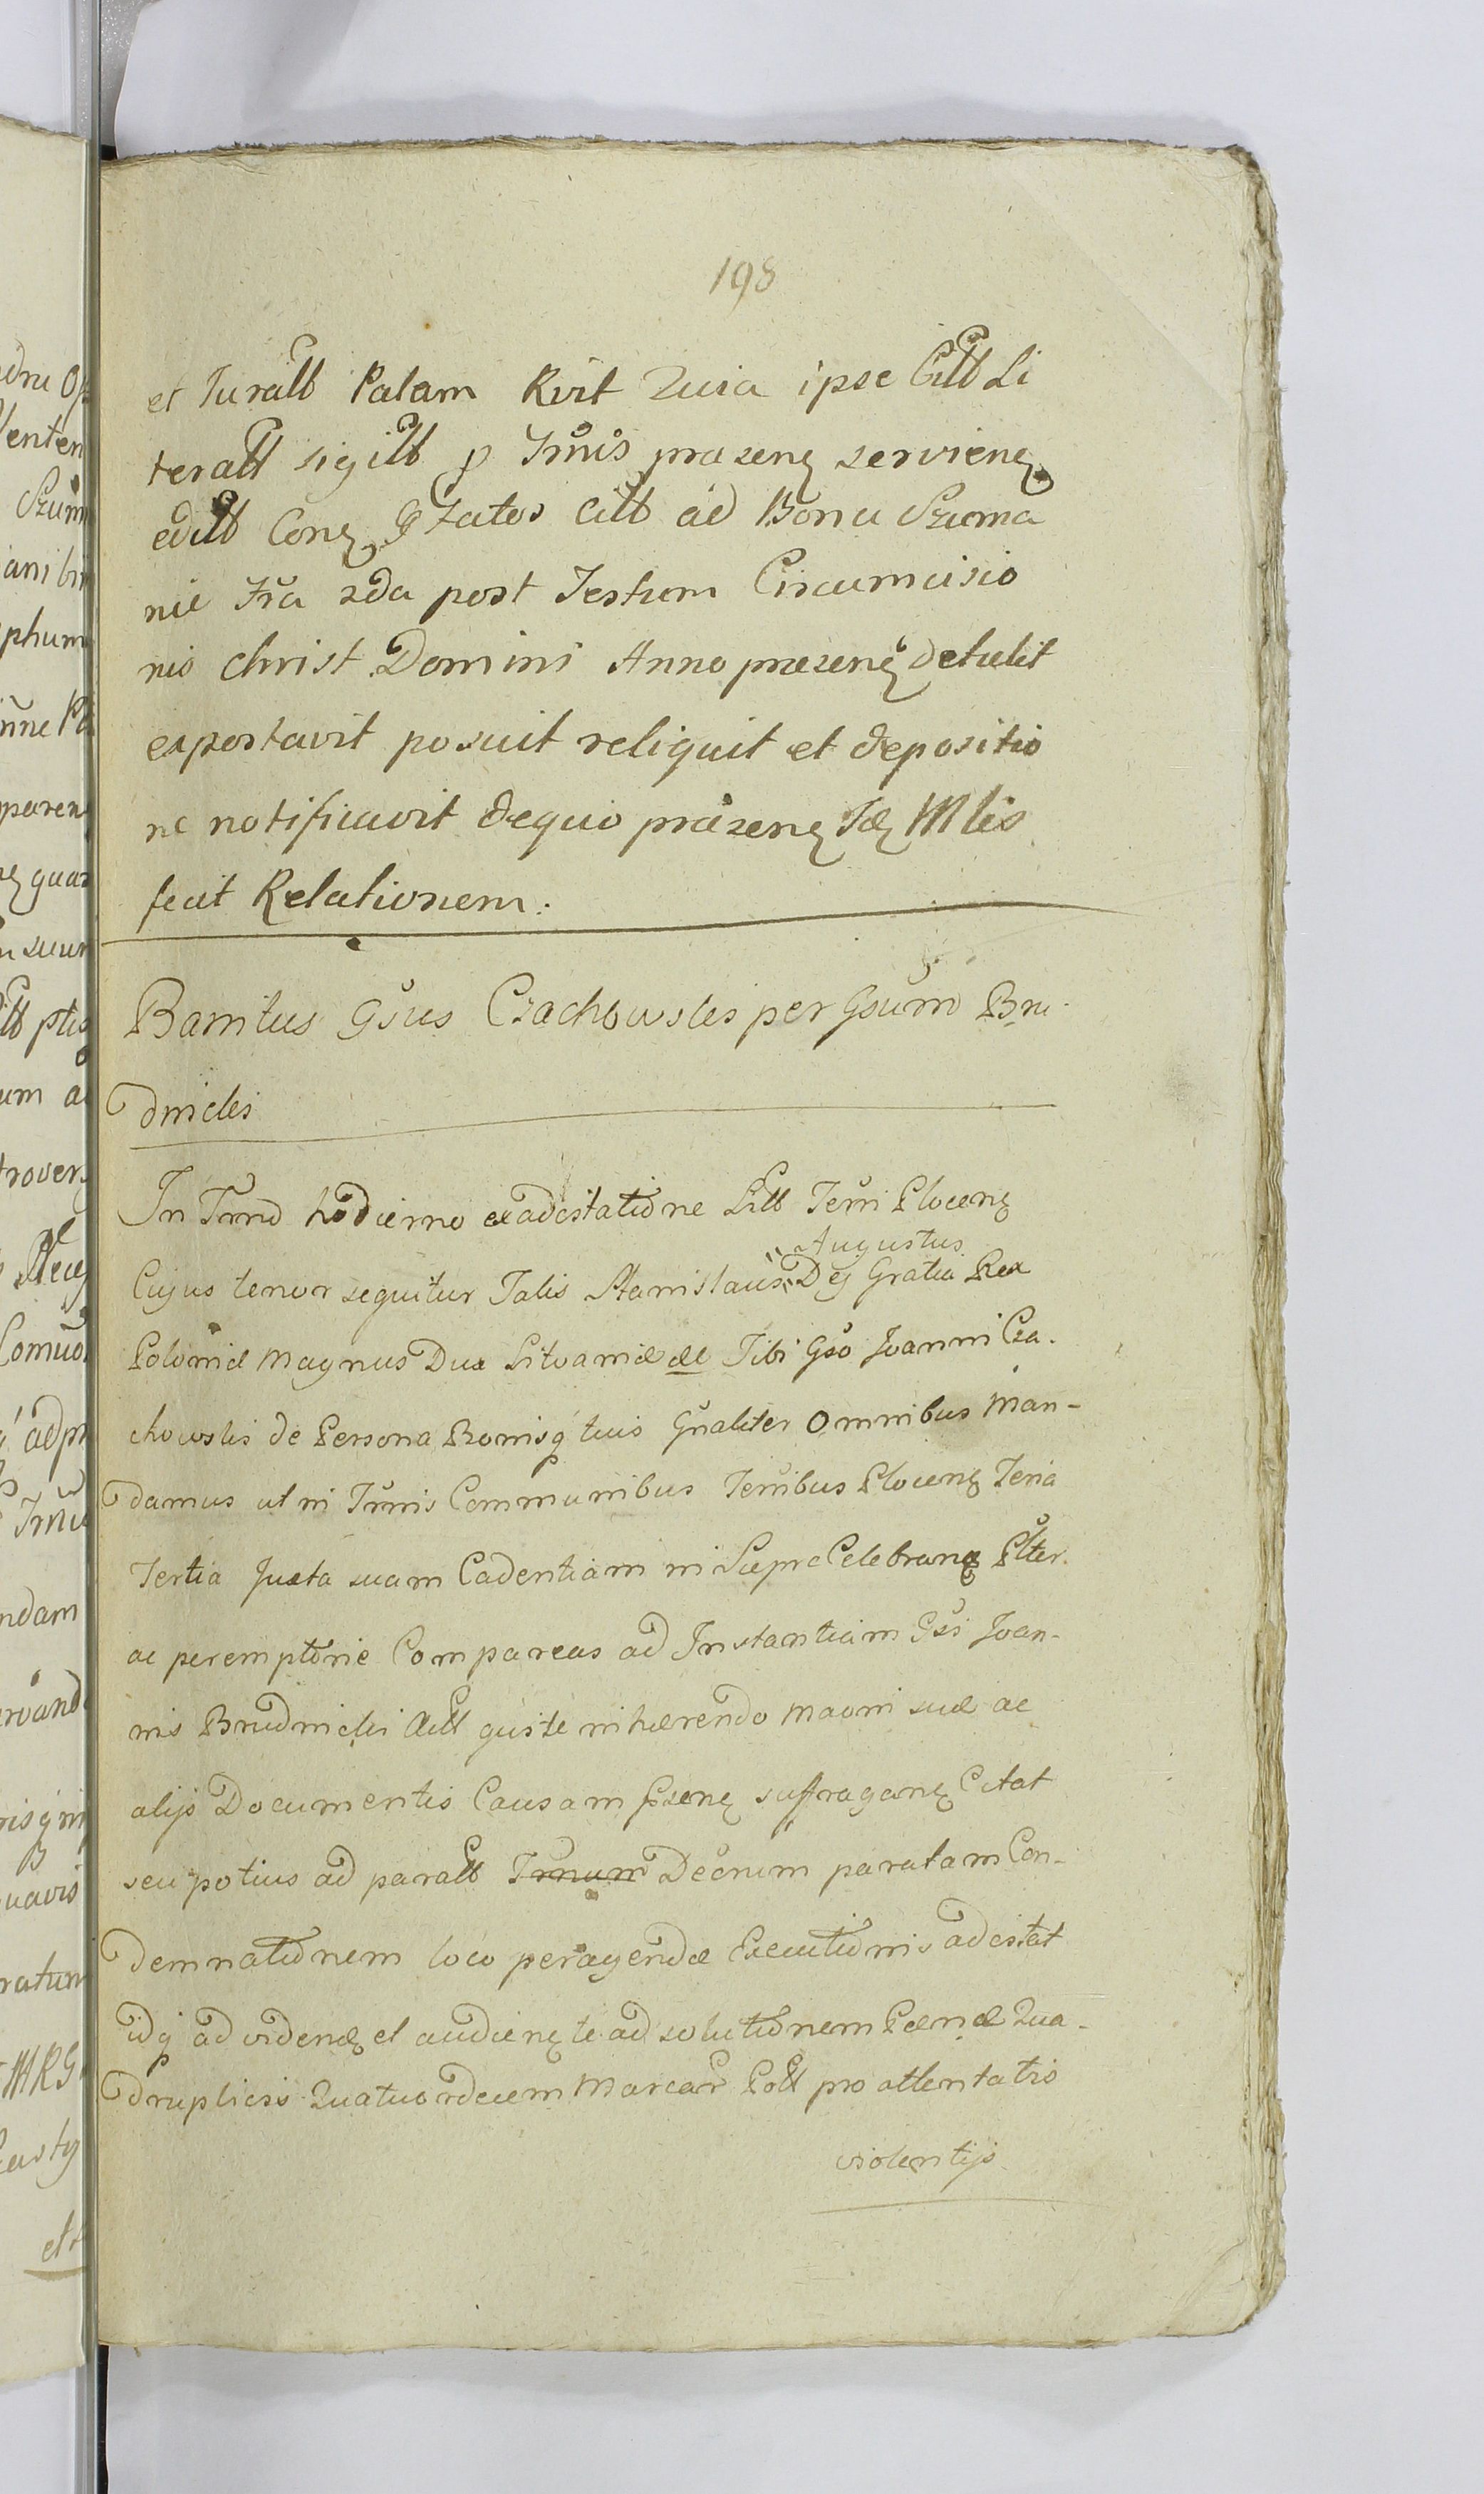 198
et Juratt Palam Rvit Quia ipse Citt Li
teratt sigitt p Trnis præzenz servienz
editt Conz Gzatos Citt ad Bona Szuma
nie Fra 2da post Festum Circumcisio
nis Christ Domini Anno præzenz detulit
exportavit posuit reliquit et depositio
ne notificavit dequo præzenz Idz Mlis
fecit Relationem.
Banitus Gsus Czachowski per Gsum Bru-
dnicki
In Trno hodierno ex adcitatione Litt Terri Plocenz
Cujus tenor sequitur Talis Stanislaus Augustus Dej Gratia Rex
Poloniæ Magnus Dux Litvaniæ &c Tibi Gso Joanni Cza-
chowski de Persona Bonisq tuis Gnaliter Omnibus Man-
damus ut in Trnis Communibus Terribus Plocenz Feria
Tertia Juxta suam Cadentiam in Sieprc Celebranz Plter.
ac peremptorie Compareas ad Instantiam Gsi Joan-
nis Brudnicki Actt qui te inhærendo Maoni suæ ac
alijs Documentis Causam pzenz suffraganz Citat
seu potius ad paratt Trnum Decrum paratam Con-
demnationem loco peragendæ Executionis adcitat
idq ad videnz et audienz te ad solutionem Pænæ Qua-
druplicis Quatuordecem Marcar Poll pro attentatis
violentijs